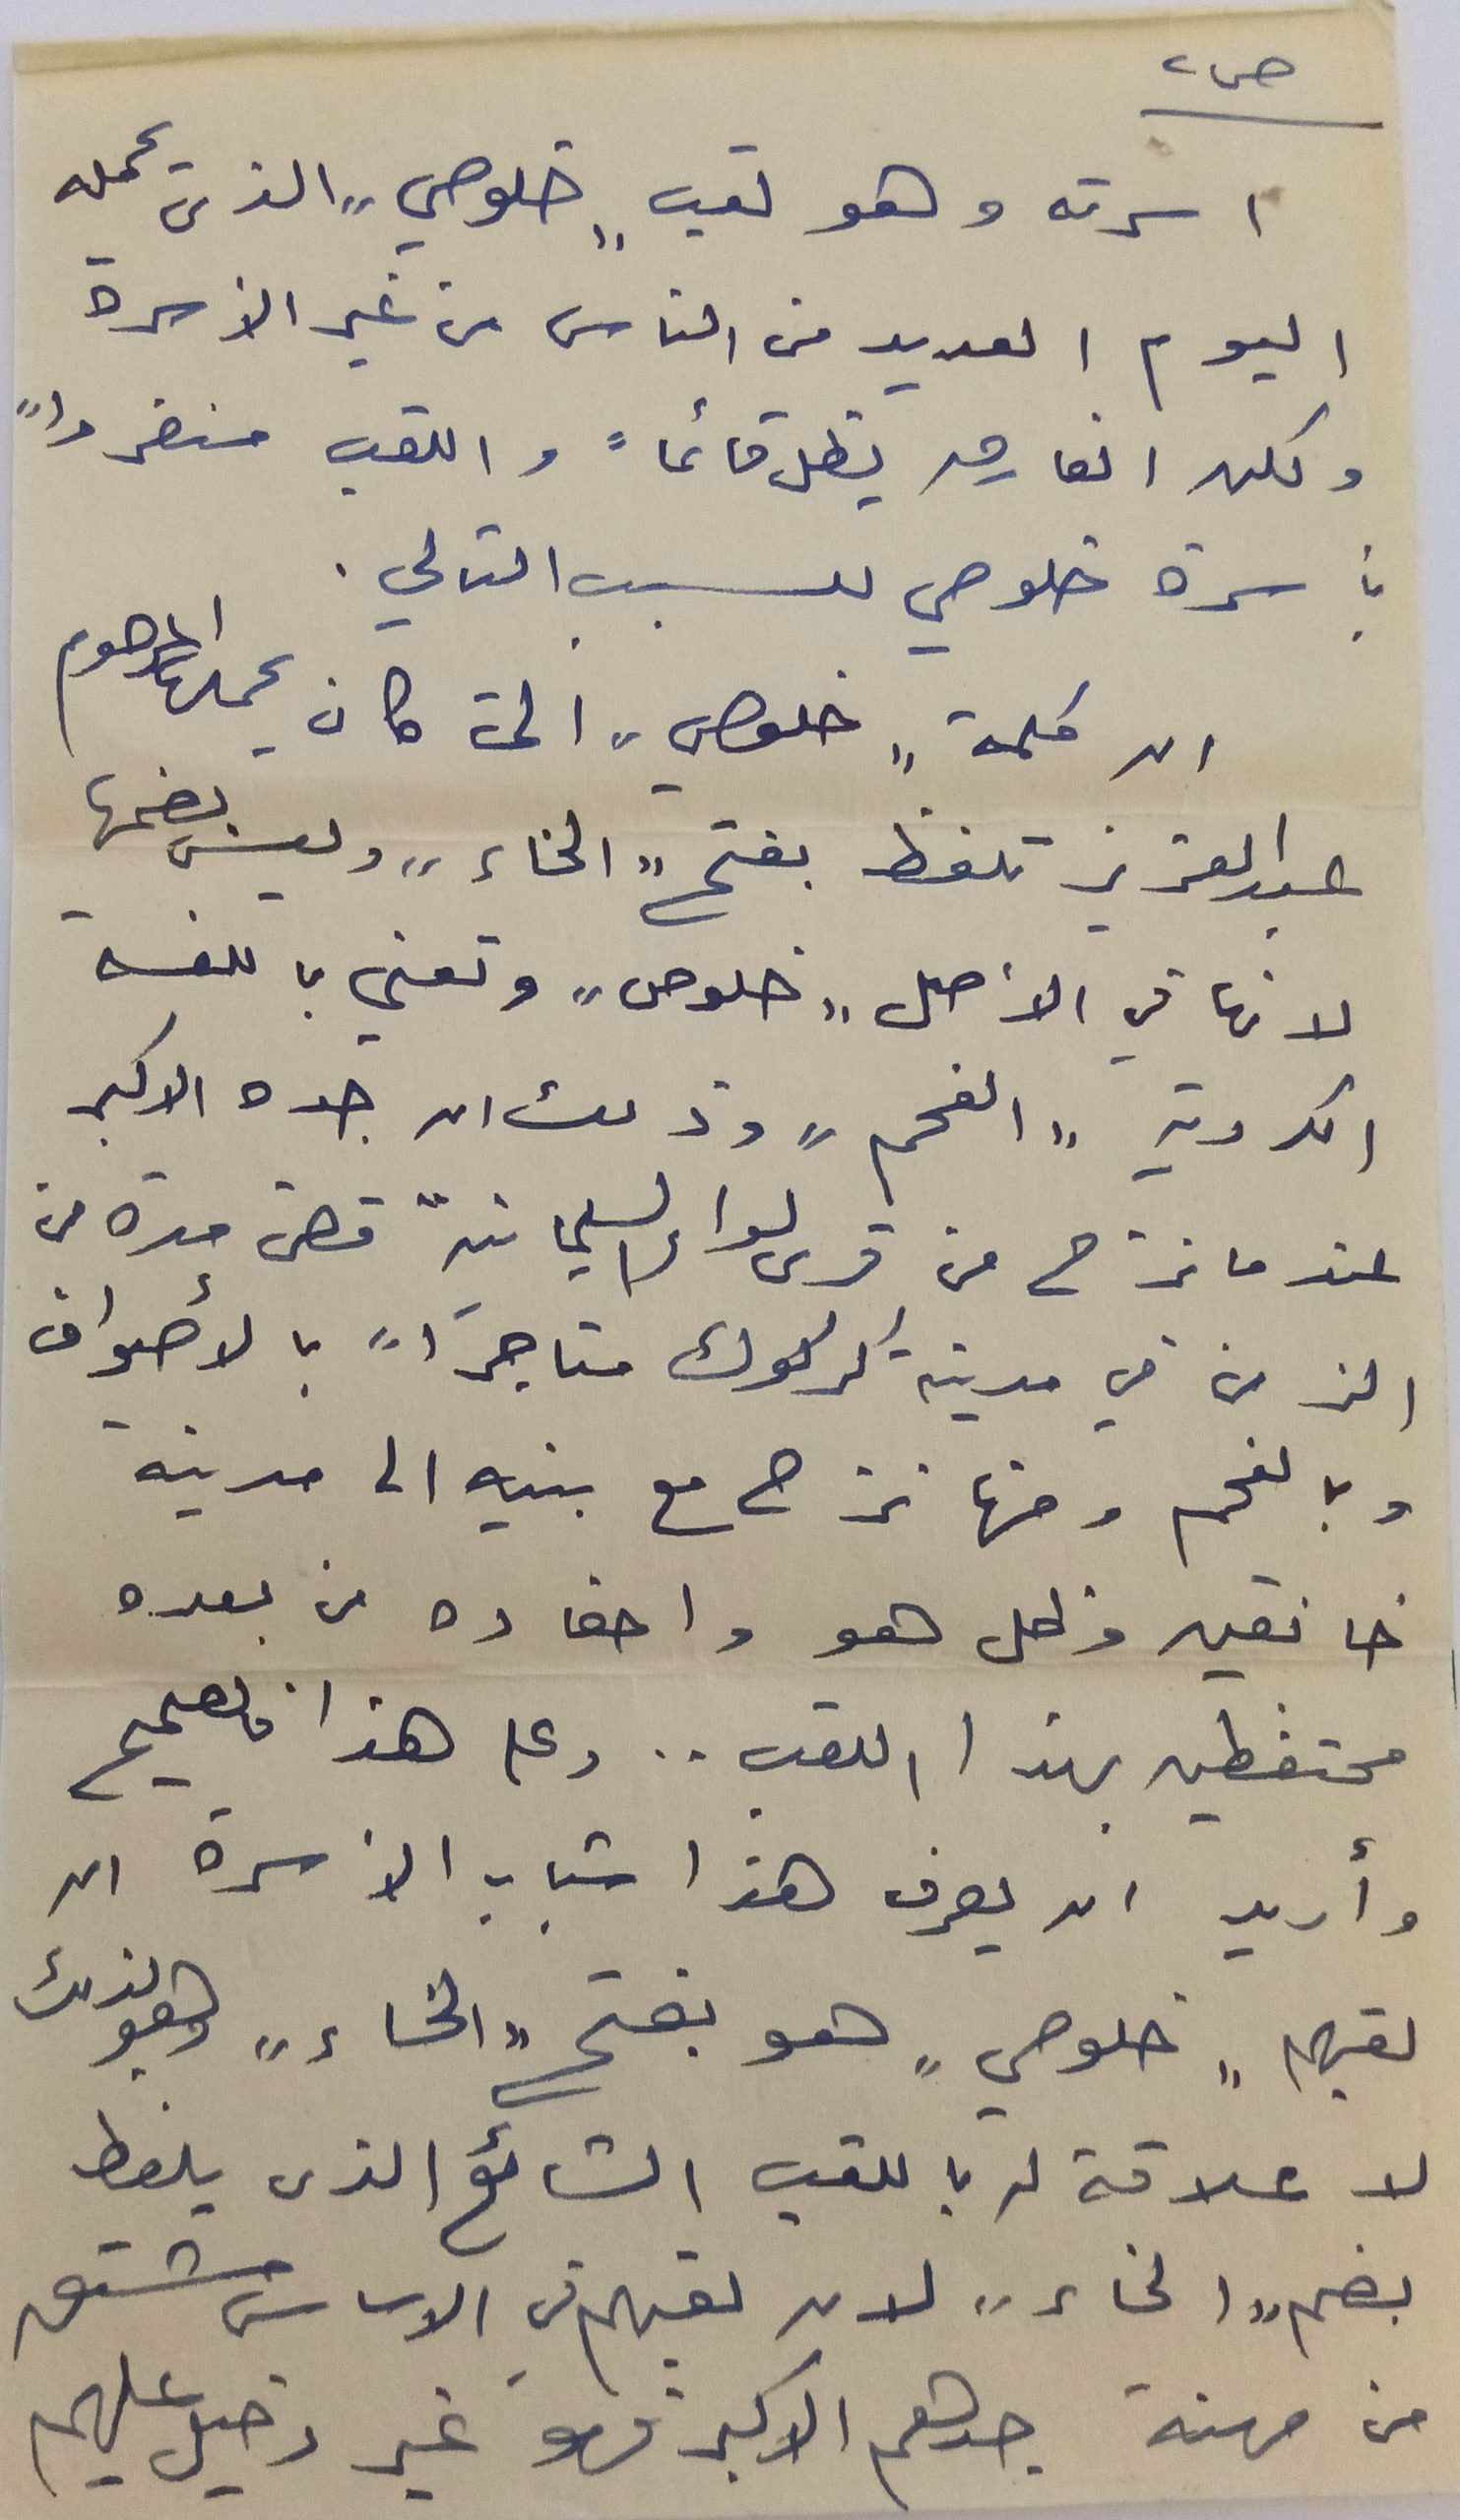 ص ٢
اسرته وهو لقب "خلوصي" الذي يحمله
اليوم العديد من الناس من غير الأسرة
ولكن الفارق يظل قائماً واللقب منفرداً
بأسرة خلوصي للسبب التالي.
ان كلمة "خلوصي" التي كان يحملها المرحوم
عبدالعزيز تلفظ بفتح "الخاء" وليس بضمها
لانها في الأصل "خلوص" وتعني باللغة
الكردية "الفحم" وذلك ان جده الاكبر
عندما نزح من قرى لواء السليمانية قضى مدة من
الزمن في مدينة كركوك متاجراً بالأصواف
وبالفحم ومنها نزح مع بنيه الى مدينة
خانقين وظل هو واحفاده من بعده
محتفظين بهذا اللقب .. وعلى هذا فالصحيح
وأريد ان يعرف هذا شباب الأسرة ان
لقبهم "خلوصي" هو بفتح "الخاء" وهو لذلك
لا علاقة له باللقب الشائع الذي يلفظ
بضم "الخاء" لان لقبهم في الاساس مشتق
من مهنة جدهم الاكبر فهو غير دخيل عليهم